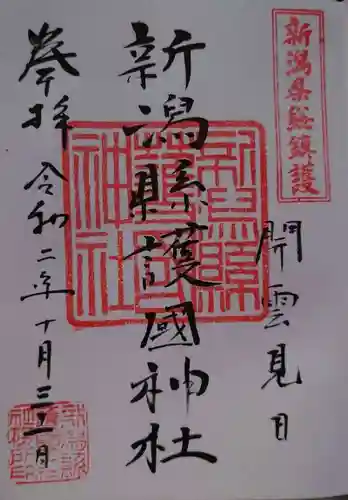 新潟県総鎮護
開雲見日
新潟縣護國神社
奉拝
令和二年十月三十一日